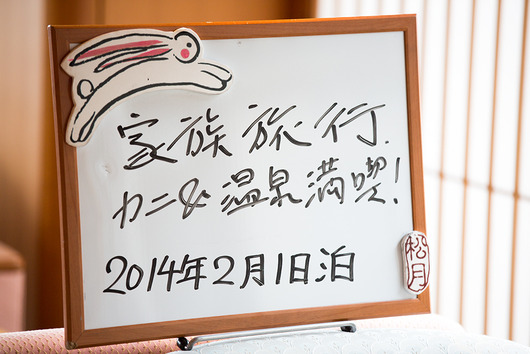 家族旅行
カニ&温泉満喫!
2014年2月1日泊
松月